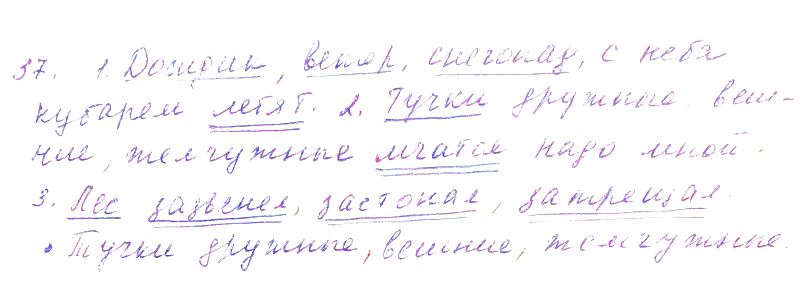 37. 1. Дождик, ветер, снегопад, с неба
кубарем летят. 2. Тучки дружные веш-
ние, жемчужные мчатся надо мной.
3. Лес зазвенел, застонал, затрещал.
• Тучки дружные, вешние, жемчужные.